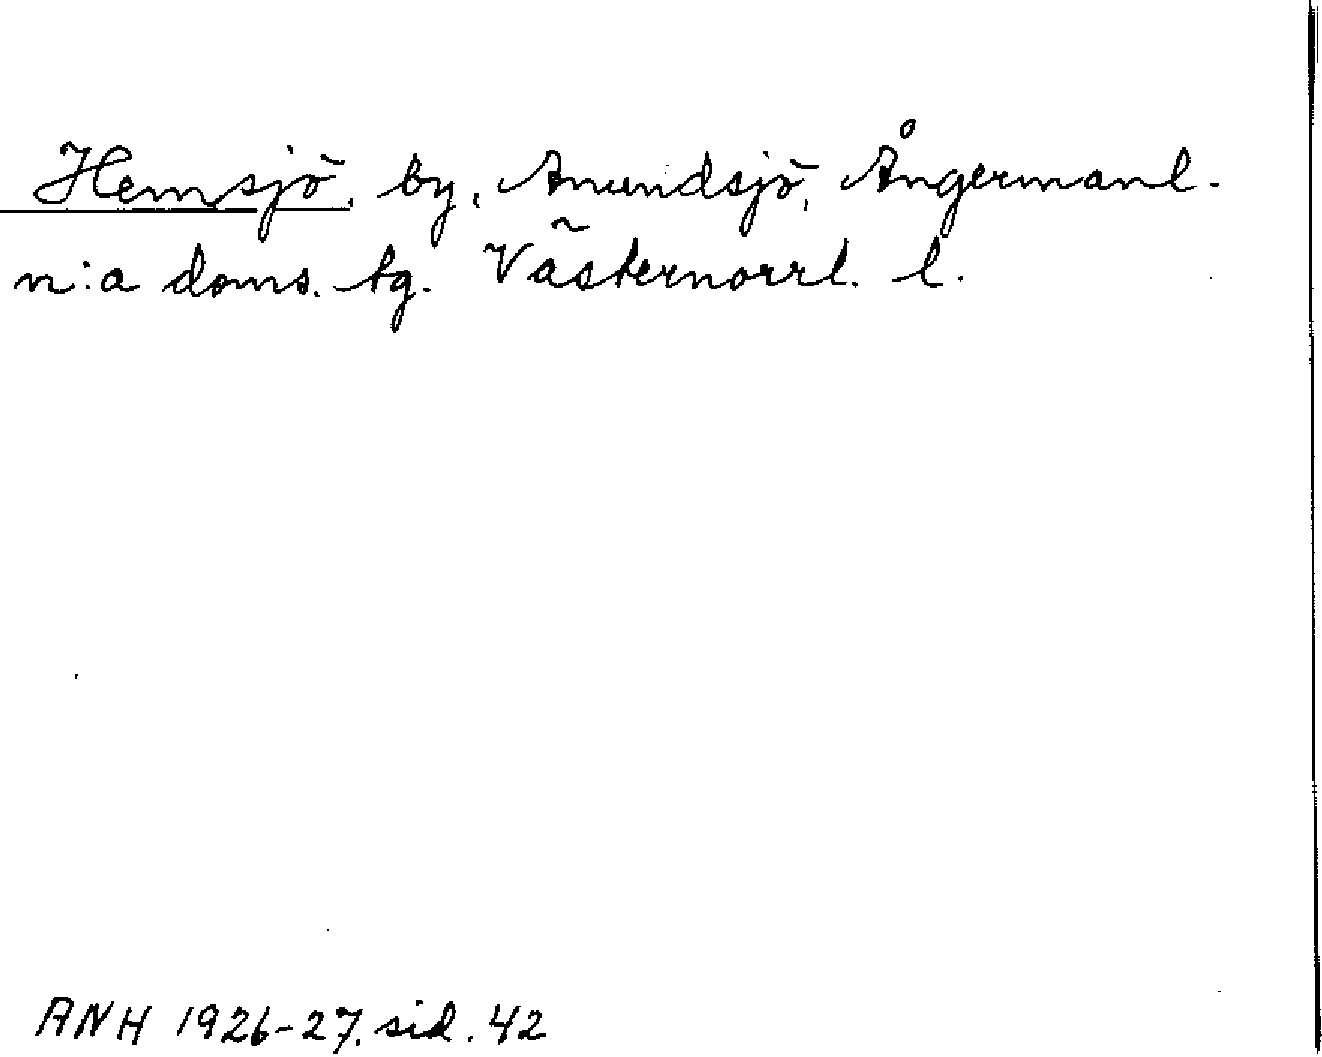 Hemsjö, by, Anundsjö, Ångermanl.
n:a doms. tg. Västernorrl. l.
ANH 1926-27, sid. 42